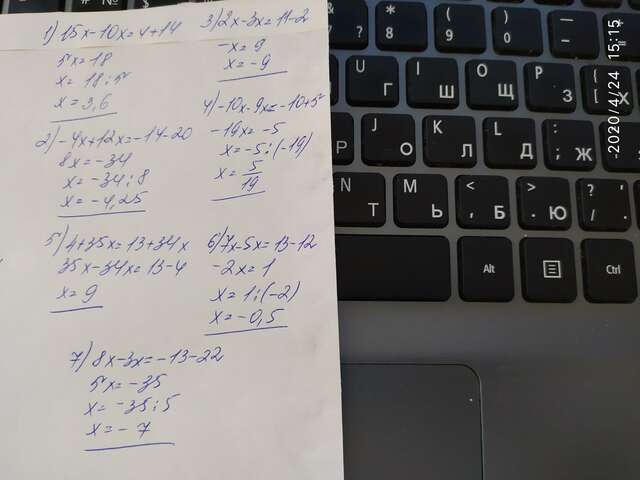 1) 15x-10x=4+14
5x=18
x=18:5
x=3,6
2) -4x+12x=-14-20
8x=-34
x=-34:8
x=-4,25
3) 2x-3x=11-2
-x=9
x=-9
4) -10x-9x=-10+5
-19x=-5
x=-5:(-19)
x=5/19
5) 4+35x=13+34x
35x-34x=13-4
x=9
6) 7x-5x=13-12
-2x=1
x=1:(-2)
x=-0,5
7) 8x-3x=-13-22
5x=-35
x=-35:5
x=-7
& 7 ?
* 8
( 9
) 0
_ -
+ =
U Г
I Ш
O Щ
P З
{ [ Х
J О
K Л
L Д
: ; Ж
N Т
M Ь
< , Б
> . Ю
? / .
Alt
Ctrl
2020/4/24 15:15